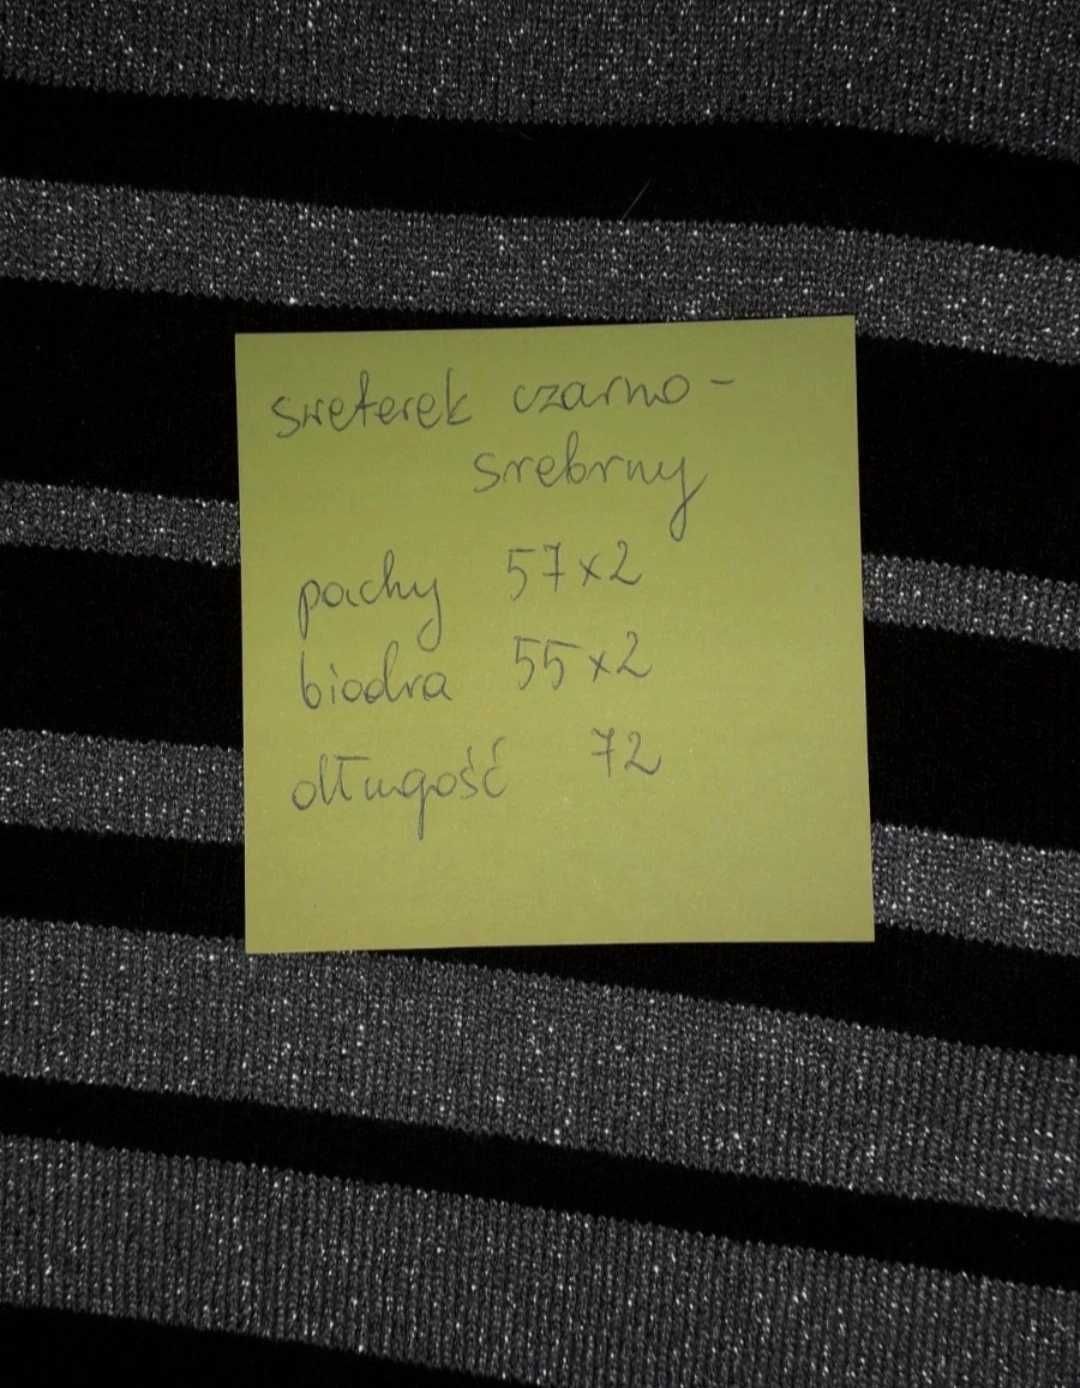 sweterek czarno-
srebrny
pachy 57x2
biodra 55x2
długość 72